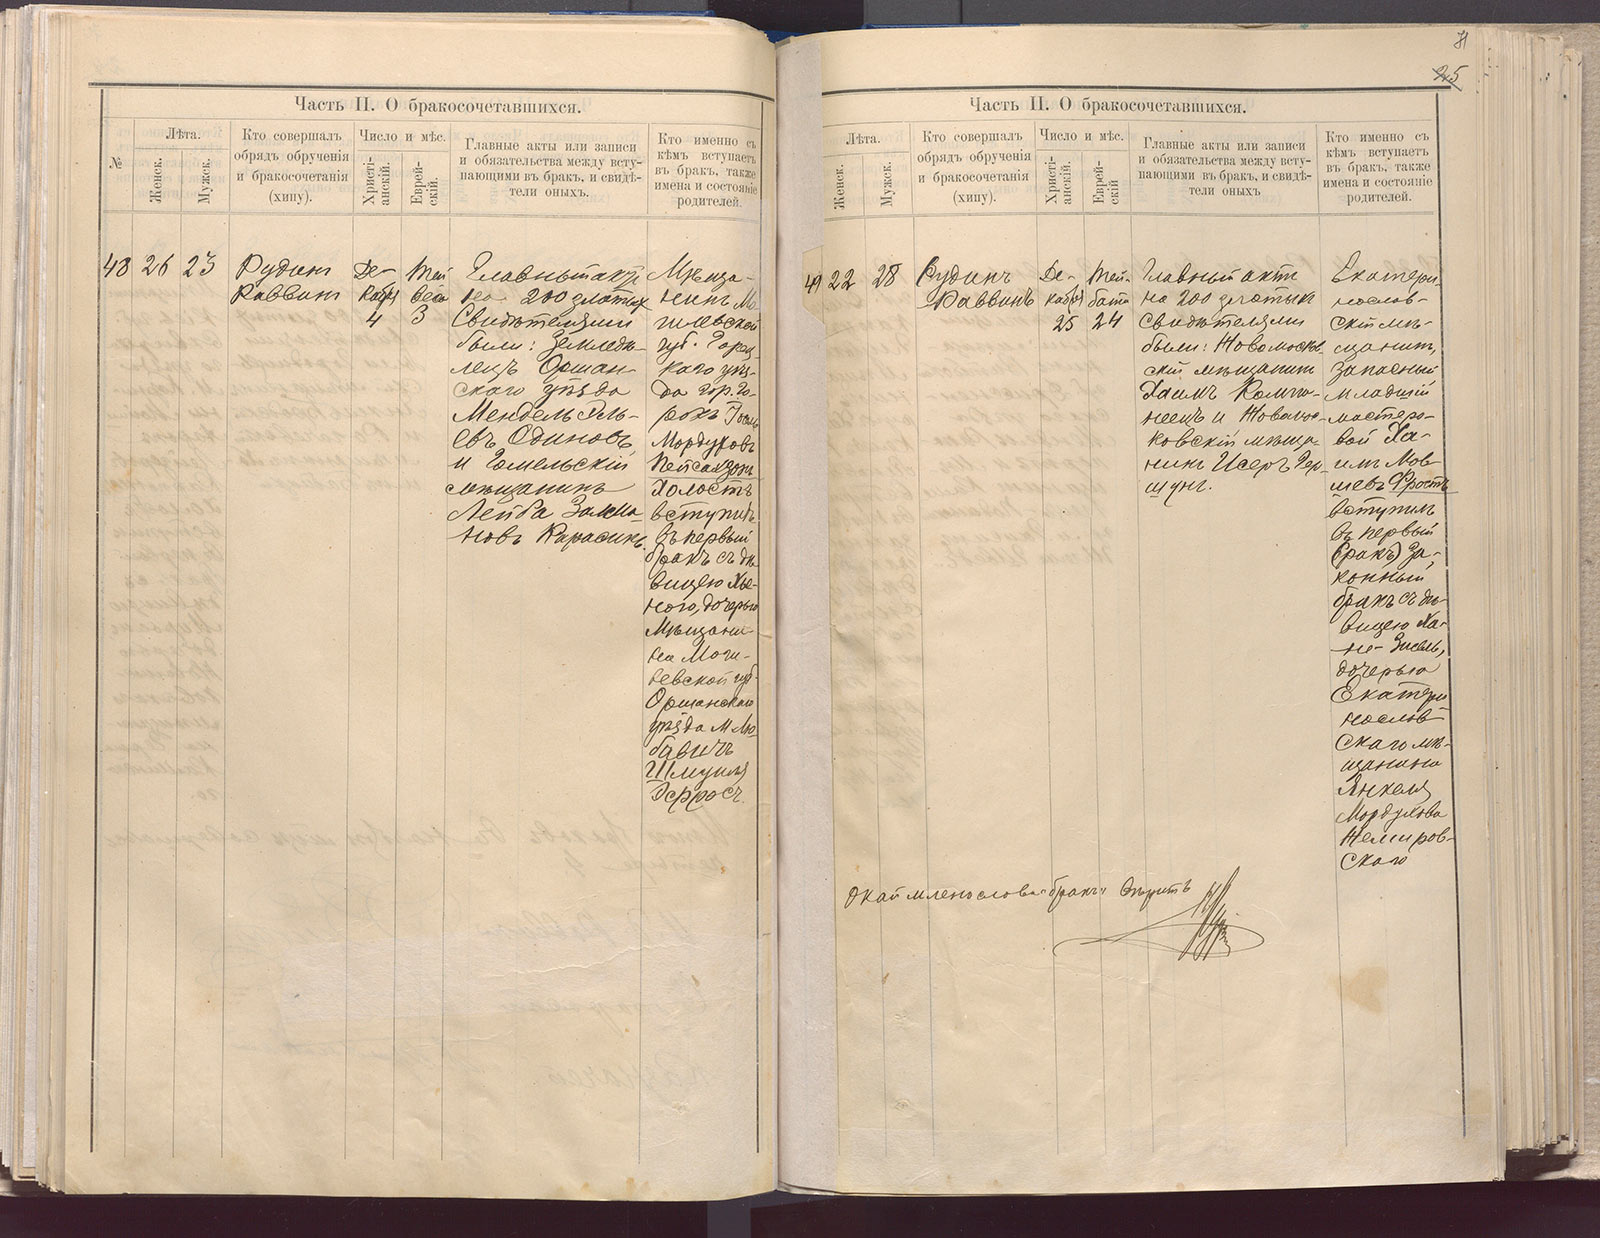 Часть II. О бракосочетавшихся.
№
Лѣта.
Женск.
Мужск.
Кто совершалъ
обрядъ обрученія
и бракосочетанія
(хипу).
Число и мѣс.
Христі-
анскій.
Еврей-
скій.
Главные акты или записи
и обязательства между всту-
пающими въ бракъ, и свидѣ-
тели оныхъ.
Кто именно съ
кѣмъ вступаетъ
въ бракъ, также
имена и состояніе
родителей.
48
26
23
Рудинъ
Раввинъ
Де-
кабря
4
Тей
весъ
3
Главный актъ
на 200 злотыхъ
Свидѣтелями
были: Земледѣ-
лецъ Оршан-
скаго уѣзда
Мендель
евъ Одиновъ
и Гомельскій
мѣщанинъ
Лейба Залма-
новъ Карасикъ.
Мѣща-
нинъ Мо-
гилевской
губ. Горец-
каго уѣз-
да гор. Го-
рокъ
Мордуховъ
Пейсахзонъ
Холостъ
вступилъ
въ первый
бракъ съ дѣ-
вицею Хье-
ною, дочерью
Мѣщани-
на Моги-
левской губ.
Оршанскаго
уѣзда м. Лю-
бавичъ
Шмуиля
Часть II. О бракосочетавшихся.
71
25
Лѣта.
Женск.
Мужск.
Кто совершалъ
обрядъ обрученія
и бракосочетанія
(хипу).
Число и мѣс.
Христі-
анскій.
Еврей-
скій
Главные акты или записи
и обязательства между всту-
пающими въ бракъ, и свидѣ-
тели оныхъ
Кто именно съ
кѣмъ вступаетъ
въ бракъ, также
имена и состояніе
родителей.
49
22
28
Рудинъ
Раввинъ
Де-
кабря
25
Тей-
24
Главный актъ
на 200 злотыхъ
свидѣтелями
были: Новомосков-
скій мѣщанинъ
Хаимъ
и
ковскій мѣща-
нинъ Исеръ Гер-
шунъ.
Екатери-
нослав-
скій мѣ-
щанинъ,
запасный
младшій
мастеро-
вой Ха-
имъ Мов-
шевъ Фростъ
вступилъ
въ первый
(бракъ) за-
конный
бракъ съ дѣ-
вицею Ха-
не-Зисель,
дочерью
Екатери
нослав-
скаго мѣ-
щанина
Янкеля
Мордухова
Немиров-
скаго
слово "бракъ" вѣрить